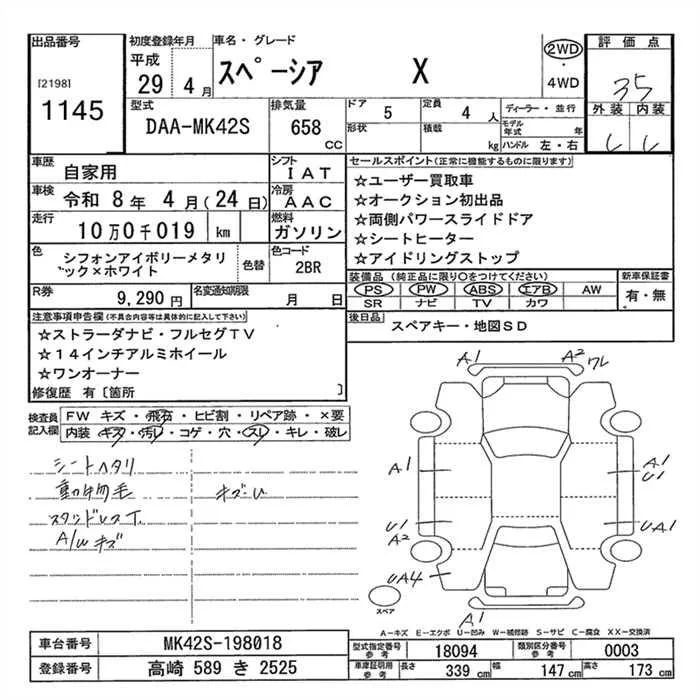 出品番号
[2198]
1145
初度登録年月
平成
29 4 月
車名・グレード
スペーシア X
2WD
・
4WD
評価点
35
外装 内装
型式
DAA-MK42S
排気量
658
CC
ドア 5
定員 4 人
形状
積載 kg
ディーラー・並行
モデル年式 年
ハンドル 左・右
車歴 自家用
シフト IAT
車検 令和 8年 4月(24日)
冷房 AAC
走行 10万0千019 km
燃料 ガソリン
色 シフォンアイボリーメタリ
ック×ホワイト
色替
色コード
2BR
R券 9,290円
名変通知期限 月 日
セールスポイント(正常に機能するものに限ります)
☆ユーザー買取車
☆オークション初出品
☆両側パワースライドドア
☆シートヒーター
☆アイドリングストップ
装備品(純正品に限り○をつけてください)
PS PW ABS エアB AW
SR ナビ TV カワ
新車保証書
有・無
後日品 スペアキー・地図SD
注意事項申告欄(不具合内容等は具体的に記入して下さい)
☆ストラーダナビ・フルセグTV
☆14インチアルミホイール
☆ワンオーナー
修復歴 有〔箇所 〕
検査員記入欄
FW キズ・飛石・ヒビ割・リペア跡・×要
内装 キズ・汚レ・コゲ・穴・スレ・キレ・破レ
シートヘタリ
動物毛
キズ・U
A/W キズ
A1
A2 ワレ
A1
A1
U1
U1
A2
UA1
UA4
A1
スペア
A-キズ E-エクボ U-凹み W-補修跡 S-サビ C-腐食 XX-交換済
車台番号 MK42S-198018
登録番号 高崎 589 き 2525
型式指定番号
参考
18094
類別区分番号
参考
0003
車庫証明用
参考
長さ 339 cm
幅 147 cm
高さ 173 cm